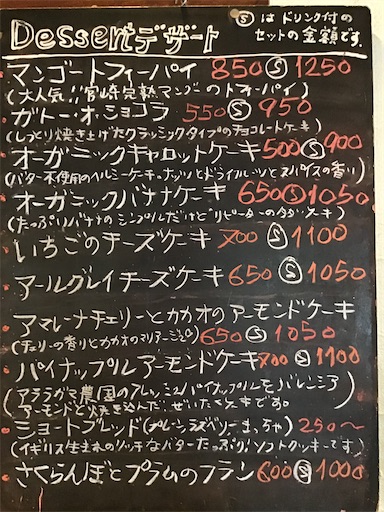 Dessert デザート
Ⓢはドリンク付の
セットの金額です。
マンゴートフィーパイ 850 Ⓢ 1250
(大人気!!宮崎完熟マンゴーのトフィーパイ)
ガトー・オ・ショコラ 550 Ⓢ 950
(しっとり焼き上げたクラッシックタイプのチョコレートケーキ)
オーガニックキャロットケーキ 500 Ⓢ 900
(バター不使用のヘルシーケーキ。ナッツとドライフルーツとスパイスの香り)
オーガニックバナナケーキ 650 Ⓢ 1050
(たっぷりバナナのシンプルだけどリピーターの多いケーキ)
いちごのチーズケーキ 700 Ⓢ 1100
アールグレイチーズケーキ 650 Ⓢ 1050
アマレーナチェリーとカカオのアーモンドケーキ
(チェリーの香りとカカオのマリアージュ) 650 Ⓢ 1050
パイナップルアーモンドケーキ 700 Ⓢ 1100
(アララガマ農園のフレッシュパイナップルをバレンシア
アーモンドと焼き込んだぜいたくケーキです。
ショートブレッド(プレーン、ラズベリー、まっちゃ) 250〜
(イギリス生まれのリッチなバターたっぷり!ソフトクッキーです)
さくらんぼとプラムのフラン 600 Ⓢ 1000